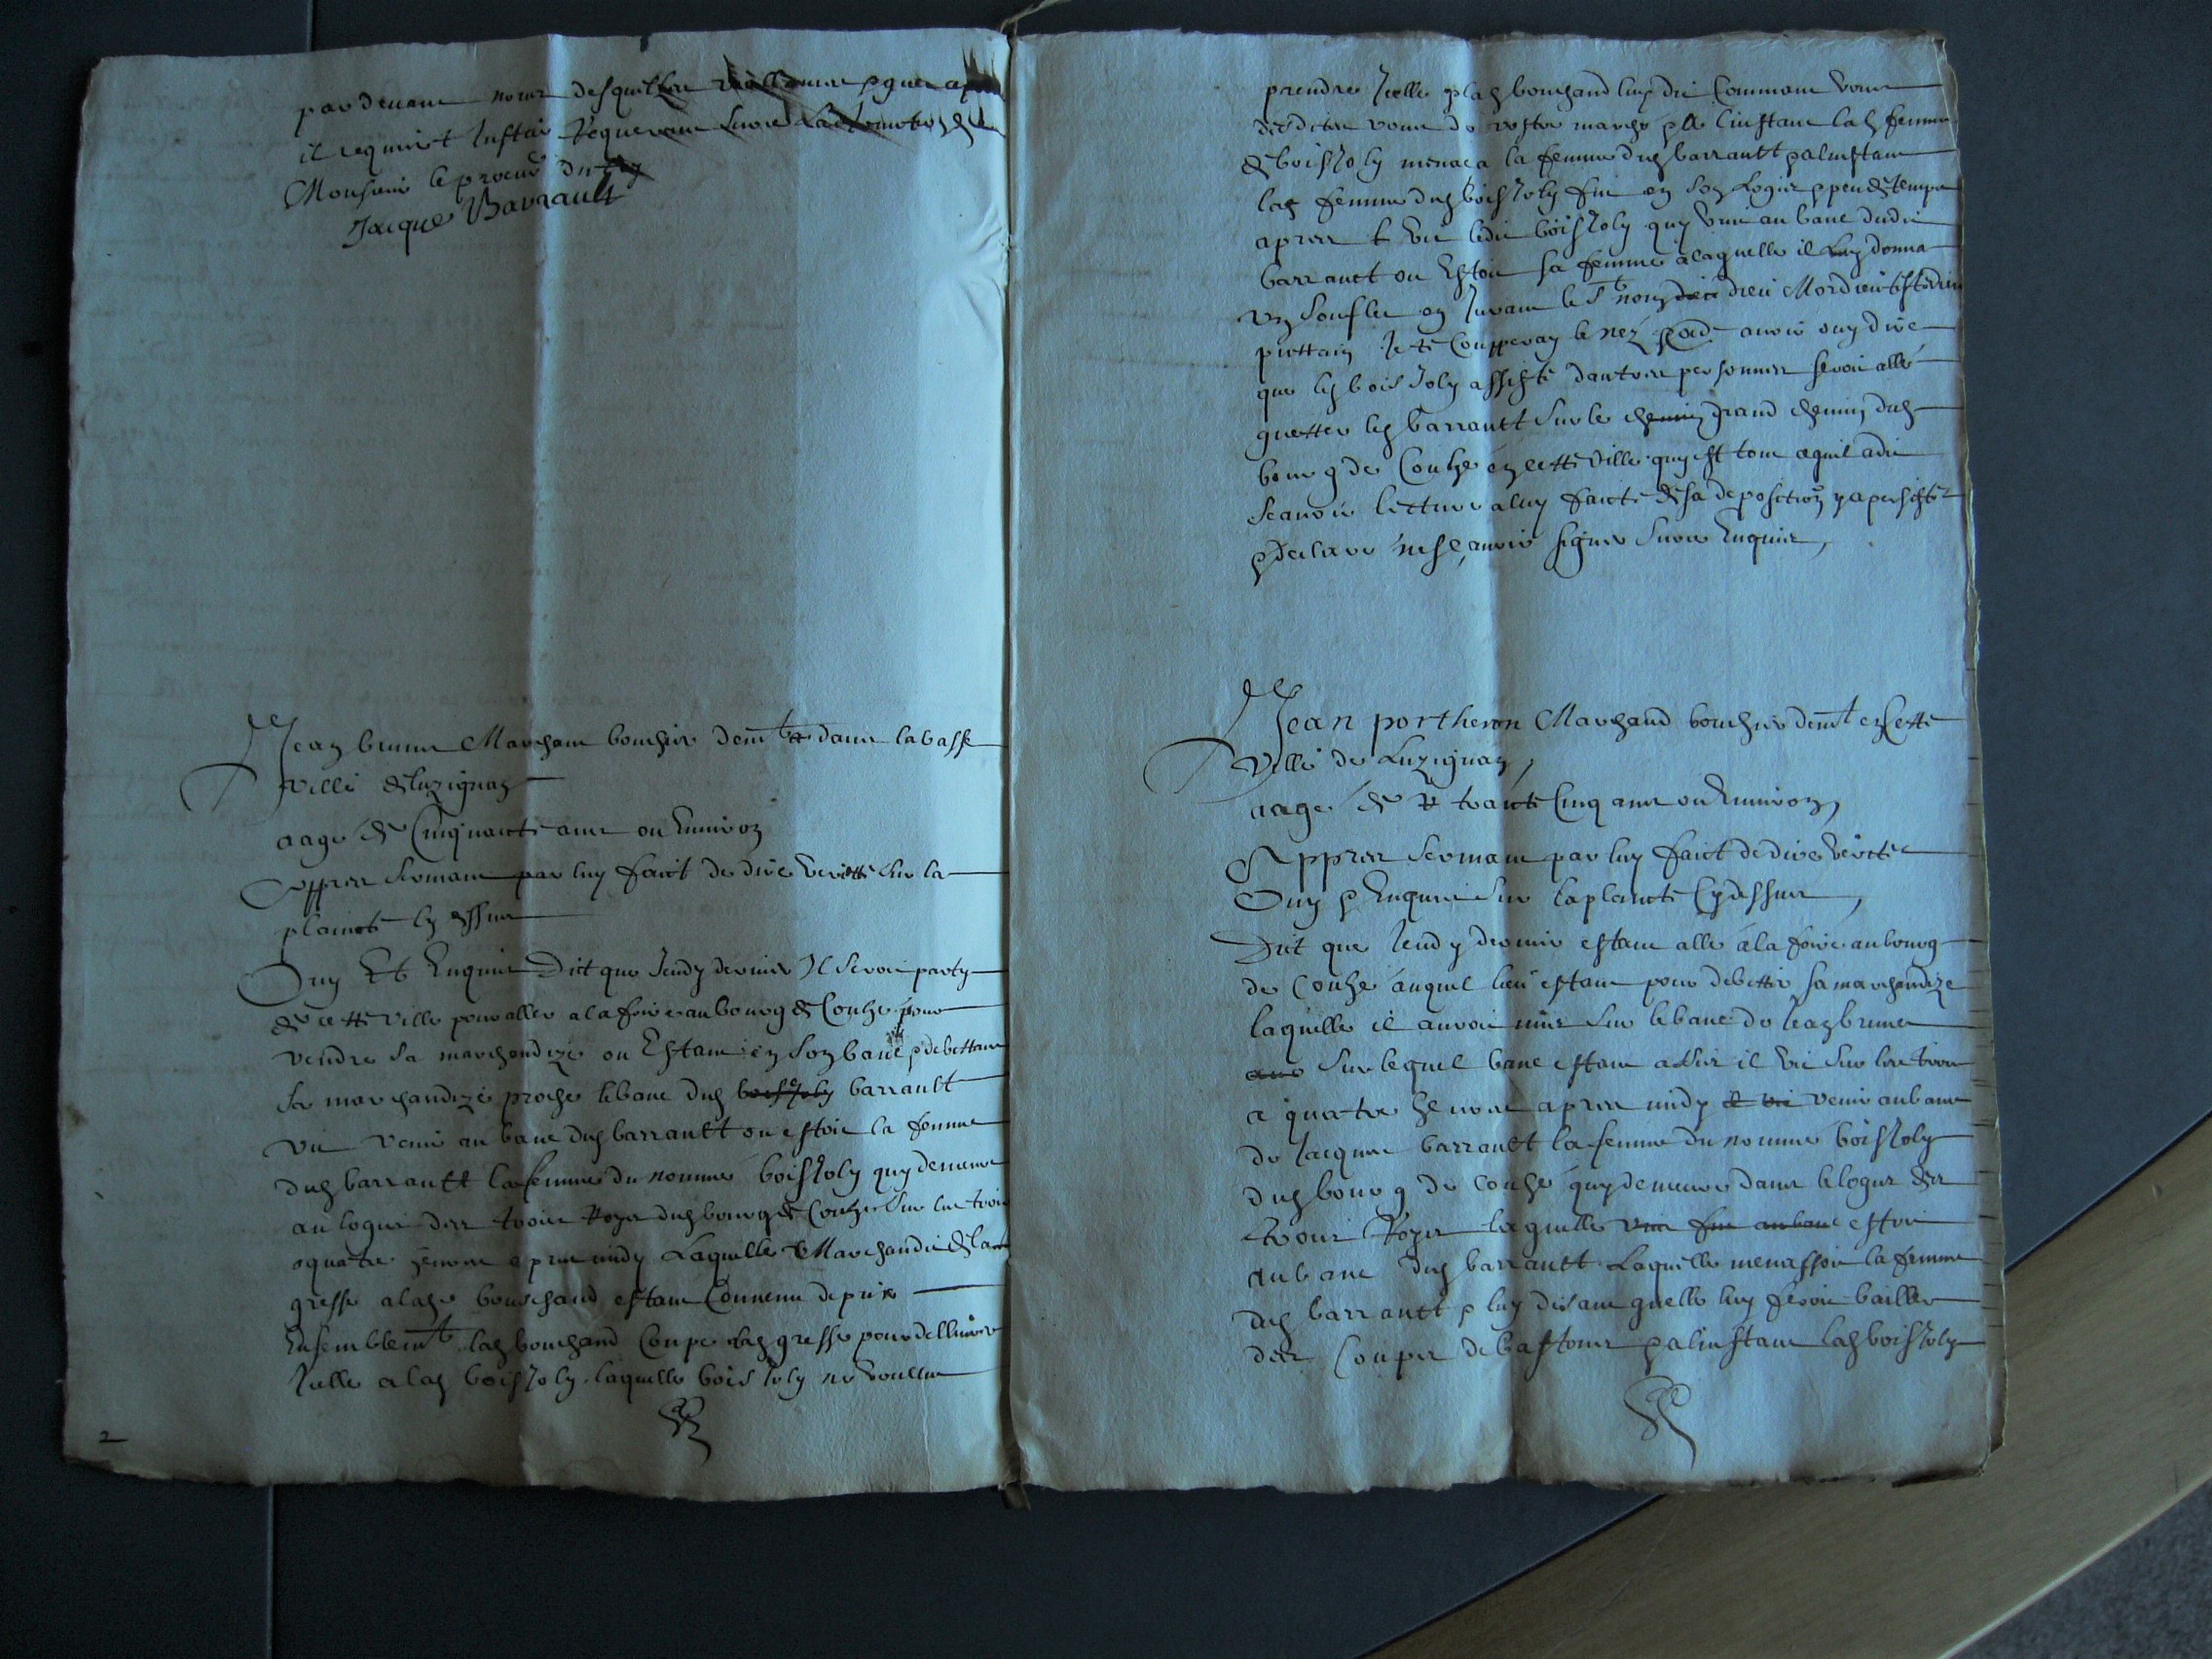 par devant nous desquelles
il requiert Justice Requerant
Monsieur le procur du Roy
Jacque Barrault
Jean brunet Marchant boucher demt dans la basse
ville de luzignan
aage de Cinquante ans ou Environ
Appres sermant par luy faict de dire veritte sur la
plaincte cy dessus
Ouy Et Enquis Dict que Jeudy dernier Il seroit party
de cette ville pour aller a la foire au bourg de Couhé pour
vendre sa marchandize ou Estant en son banc debittant
sa marchandize proche le banc dud boisJoly barrault
vit venir au banc dud barrault ou estoit la femme
dud barrault la femme du nommé boisJoly quy demeure
au logis des trois Roys dud bourg de Couhé sur les trois
a quatre heures apres midy Laquelle Marchandit de la
gresse a lad bouchand estant Convenu de prix
Ensemblemt lad bouchand Coupe lad gresse pour dellivrer
Icelle a lad boisJoly laquelle boisJoly ne voullut
2
prendre Icelle lad bouchand luy dit Commant vous
desdites vous de vostre marché a linstant lad femme
de boisJoly menaca la femme dud barrault a linstant
lad femme dud boisJoly fut en son Logis peu de temps
apres vit ledit boisJoly quy vint au banc dudit
barrault ou Estoit sa femme a laquelle il Luy donna
un souflet en Jurant le St nom de dieu Mordieu
puttain Je te Coupperay le nez avoir ouy dire
que led boisJoly assisté dautres personnes seroit allé
guetter led barrault sur le chemin grand chemin dud
bourg de Couhé en cette ville quy est tout ce quil a dit
scavoir lecture a luy faicte de sa deposition y a persisté
declaré ne scavoir signer sur ce Enquis,
Jean portheron Marchand boucher demt en Cette
Ville de Luzignan,
aagé de trante Cinq ans ou Environ,
Appres sermant par luy faict de dire verité
Ouy Enquis sur la plaincte Cy dessus,
Dict que Jeudy dernier estant allé a la foire au bourg
de Couhé auquel lieu estant pour debitter sa marchandize
laquelle il avoit mis sur le banc de Jean brunet
sur lequel banc estant assis il vit sur les trois
a quatre heures apres midy et vit venir au banc
de Jacques barrault la femme du nommé boisJoly
dud bourg de Couhé quy demeure dans le logis des
trois Roys laquelle vint fut au banc estoit
au banc dud barrault Laquelle menassoit la femme
dud barrault luy disant quelle luy feroit bailler
des Coups de bastons a linstant lad boisJoly